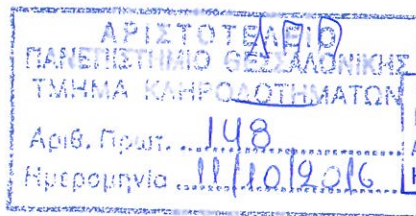 ΑΡΙΣΤΟΤΕΛΕΙΟ
ΠΑΝΕΠΙΣΤΗΜΙΟ ΘΕΣΣΑΛΟΝΙΚΗΣ
ΤΜΗΜΑ ΚΛΗΡΟΔΟΤΗΜΑΤΩΝ
Αριθ. Πρωτ. 148
Ημερομηνία 11/10/2016